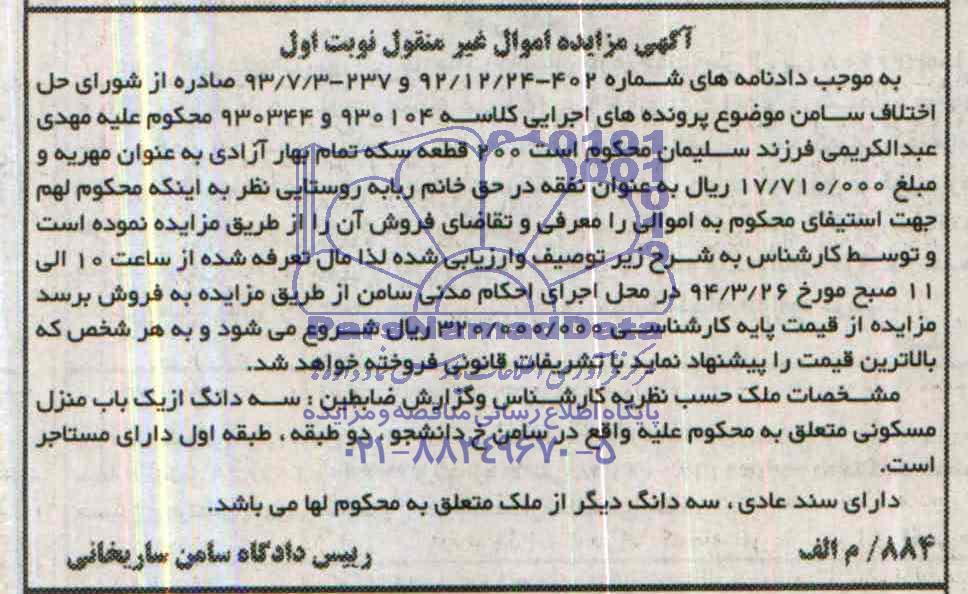 آگهی مزایده اموال غیر منقول نوبت اول
به موجب دادنامه های شماره ۴۰۲-۹۲/۱۲/۲۴ و ۲۳۷-۹۳/۷/۳ صادره از شورای حل
اختلاف سامن موضوع پرونده های اجرایی کلاسه ۹۳۰۱۰۴ و ۹۳۰۳۴۴ محکوم علیه مهدی
عبدالکریمی فرزند سلیمان محکوم است ۲۰۰ قطعه سکه تمام بهار آزادی به عنوان مهریه و
مبلغ ۱۷/۷۱۰/۰۰۰ ریال به عنوان نفقه در حق خانم ربابه روستایی نظر به اینکه محکوم لهم
جهت استیفای محکوم به اموالی را معرفی و تقاضای فروش آن را از طریق مزایده نموده است
و توسط کارشناس به شرح زیر توصیف وارزیابی شده لذا مال تعرفه شده از ساعت ۱۰ الی
۱۱ صبح مورخ ۹۴/۳/۲۶ در محل اجرای احکام مدنی سامن از طریق مزایده به فروش برسد
مزایده از قیمت پایه کارشناسی ۳۲۰/۰۰۰/۰۰۰ ریال شروع می شود و به هر شخص که
بالاترین قیمت را پیشنهاد نماید با تشریفات قانونی فروخته خواهد شد.
مشخصات ملک حسب نظریه کارشناس وگزارش ضابطین : سه دانگ ازیک باب منزل
پایگاه اطلاع رسانی مناقصه و مزایده
مسکونی متعلق به محکوم علیه واقع در سامن خ دانشجو ، دو طبقه ، طبقه اول دارای مستاجر
۰۲۱-۸۸۳۴۹۶۷۰-۵
است.
دارای سند عادی ، سه دانگ دیگر از ملک متعلق به محکوم لها می باشد.
۸۸۴/ م الف
رییس دادگاه سامن ساریخانی